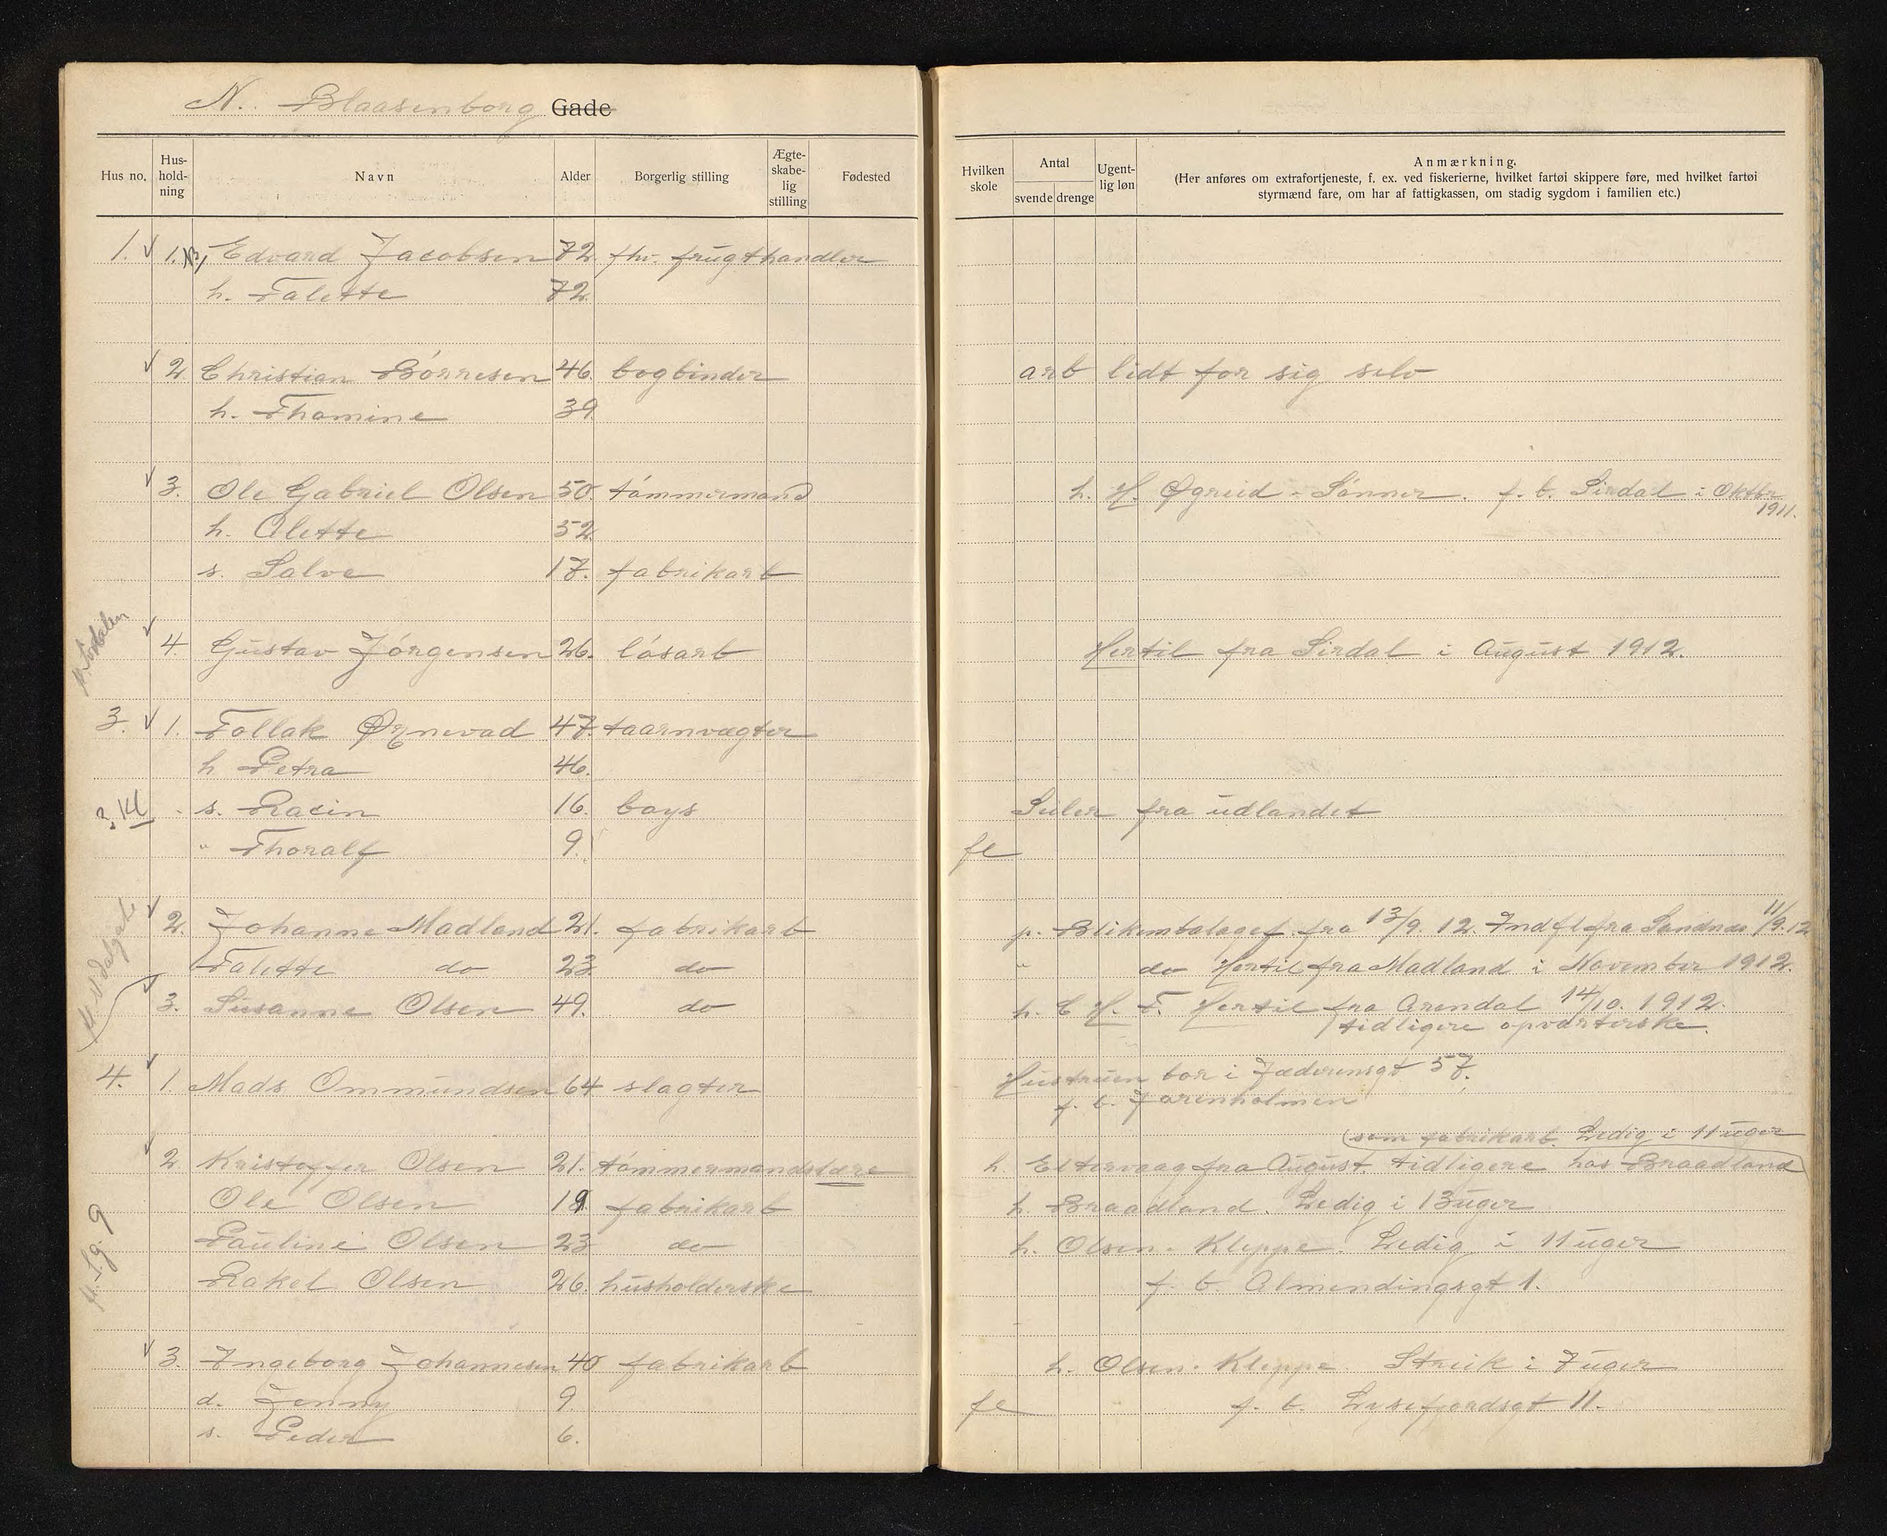 N. Blaasenborg Gade
Hus no. Hus-hold-ning Navn Alder Borgerlig stilling Ægte-skabe-lig stilling Fødested Hvilken skole Antal svende drenge Ugent-lig løn Anmærkning.
(Her anføres om extrafortjeneste, f. ex. ved fiskerierne, hvilket fartøi skippere føre, med hvilket fartøi
styrmænd fare, om har af fattigkassen, om stadig sygdom i familien etc.)
1. √ 1. Edvard Jacobsen 72. fhv. frugthandler
h. Talette 72.
√ 2 Christian Børresen 46. bogbinder arb lidt for sig selv
h. Thomine 39.
√ 3. Ole Gabriel Olsen 50. tømmermand h. H. Øgreid - Sønner. f. b. Sirdal i Oktbr 1911.
h. Olette 52.
s. Salve 17. fabrikarb
√ 4. Gustav Jørgensen 26. løsarb Hertil fra Sirdal i August 1912.
3. √ 1. Tollak Ørnevad 47. taarnvægter
h Petra 46.
3 Kl s. Racin 16. boys fra udlandet
" Thoralf 9. fl
√ 2. Johanne Madland 21. fabrikarb p. Blikemballagef fra 13/9. 12. Indfl fra Sandnæs 11/9. 12
Talette do 23. do " do Hertil fra Madland i November 1912.
√ 3. Susanne Olsen 49. do h. C H. T. Hertil fra Arendal 14/10. 1912.
tidligere opvarterske.
4. √ 1. Mads Ommundsen 64 slagter Hustruen bor i Jæderensgt 57.
f. b. Jarenholmen
som fabrikarb Ledig i 11 uger
√ 2 Kristoffer Olsen 21. tømmermandslære h. Eltervaag fra August tidligere hos Braadland
Ole Olsen 19 fabrikarb h. Braadland. Ledig i 13 uger
Pauline Olsen 23 do h. Olsen - Kleppe. Ledig i 11 uger
Rakel Olsen 26. husholderske f. b. Almendingsgt 1.
√ 3. Ingeborg Johannesen 40 fabrikarb h. Olsen - Kleppe. Streik i 7 uger
d. Jenny 9 fl f. b. Lysefjordsgt 11.
s. Peder 6.